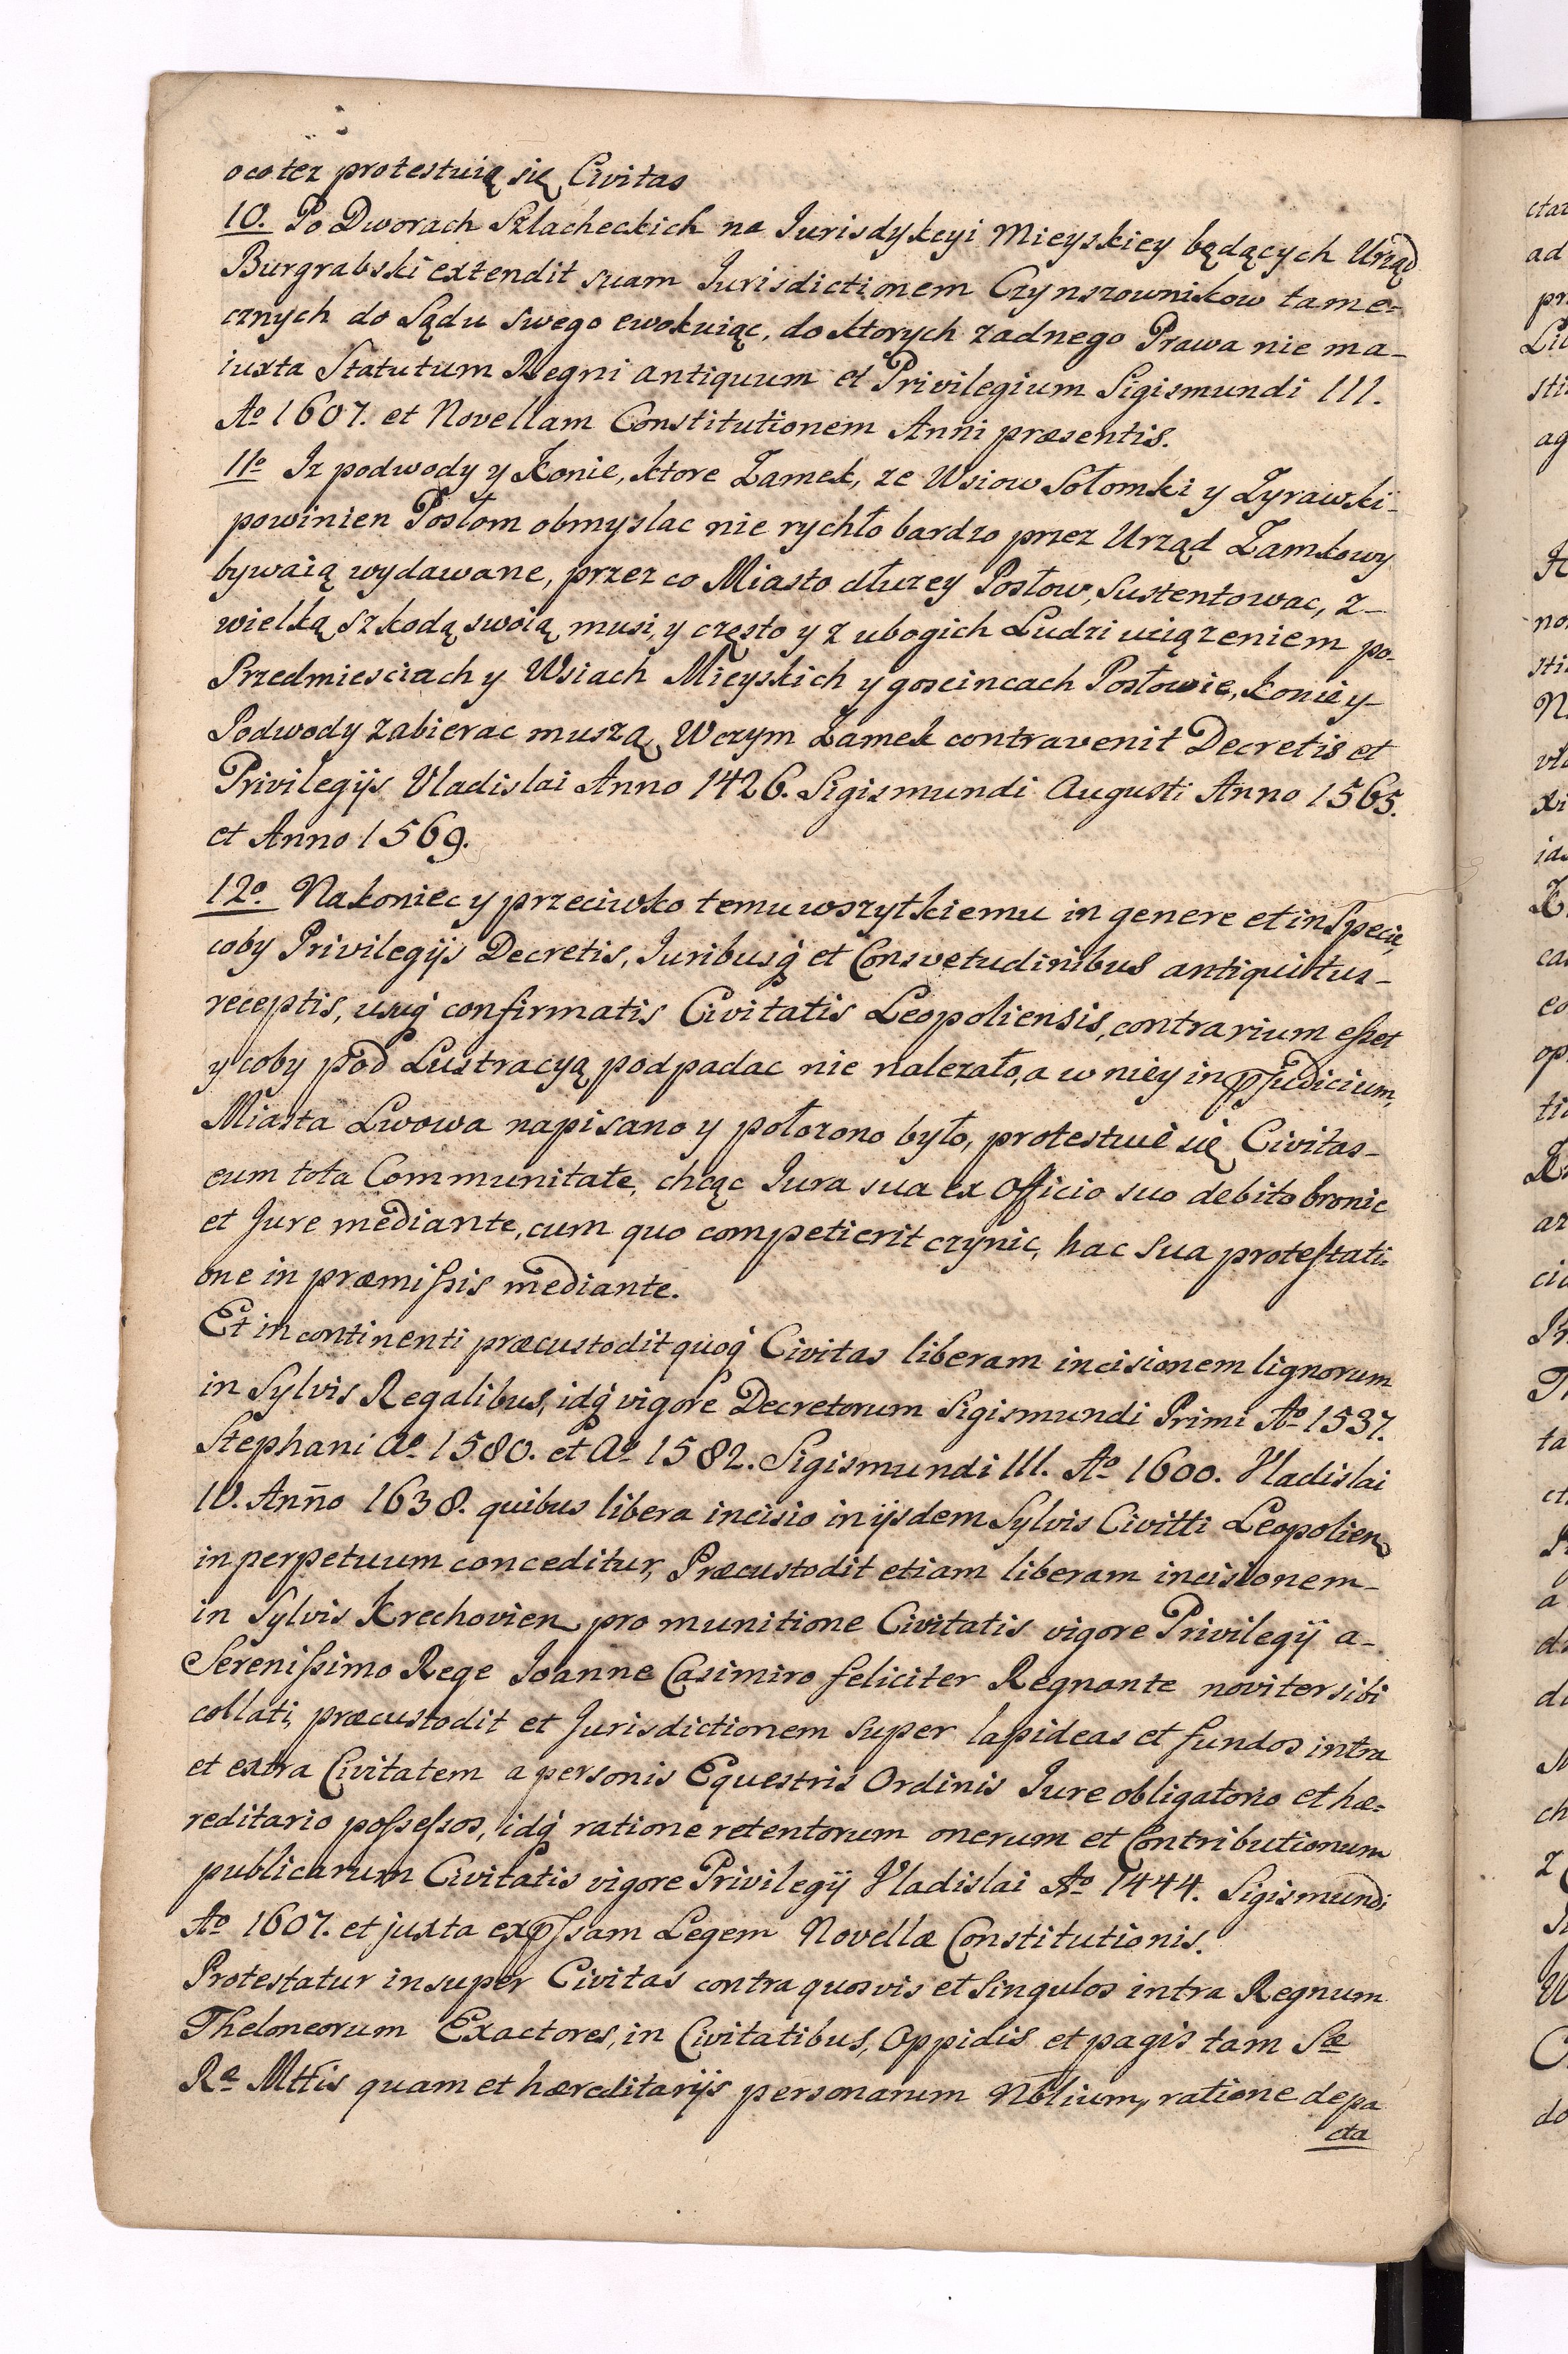 oco tez protestuią się Civitas
10. Po Dworach Szlacheckich na Iurisdykcyi Mieyskiey będących Urząd
Burgrabski extendit suam Iurisdictionem Czynszownikow tame=
cznych do Sądu swego ewokuiąc, do ktorych zadnego Prawa nie ma-
iuxta Statutum Regni antiquum et Privilegium Sigismundi III.
Aº 1607. et Novellam Constitutionem Anni præsentis.
11º Iz podwody y Konie, ktore Zamek, ze Wsiow Sołomki y Zyrawski-
powinien Posłom obmyslac nie rychło bardzo przez Urząd Zamkowy
bywaią wydawane, przez co Miasto dłuzey Posłow, Sustentowac, z-
wielką szkodą swoią musi, y często y z ubogich Ludzi uciązeniem po-
Przedmiesciach y Wsiach Mieyskich y goscincach Posłowie, konie y-
Podwody zabierac muszą, Wczym Zamek contravenit Decretis et
Privilegijs Vladislai Anno 1426. Sigismundi Augusti Anno 1565.
et Anno 1569.
12º. Nakoniec y przeciwko temu wszytkiemu in genere et in Specie,
coby Privilegijs Decretis, Iuribusq́ et Consvetudinibus antiquitus-
receptis, usuq́ confirmatis Civitatis Leopoliensis, contrarium eßet
y coby pod Lustracyą podpadac nie nalezało, a w niey in pjudicium,
Miasta Lwowa napisano y połozono było, protestuie się Civitas-
cum tota Communitate, chcąc Iura sua ex Officio suo debito bronic
et Jure mediante, cum quo competierit czynic, hac sua protestati-
one in præmißis mediante.
Et in continenti præcustodit quoq́ Civitas liberam incisionem lignorum
in Sylvis Regalibus, idq́ vigore Decretorum Sigismundi Primi Aº 1537.
Stephani Aº. 1580. et Aº 1582. Sigismundi III. Aº 1600. Vladislai
IV. Anño 1638. quibus libera incisio in ijsdem Sylvis Civitti Leopolien
in perpetuum conceditur, Præcustodit etiam liberam incisionem-
in Sylvis Krechovien pro munitione Civitatis vigore Privilegij a-
Serenißimo Rege Ioanne Casimiro feliciter Regnante noviter sibi
collati, præcustodit et Jurisdictionem super lapideas et fundos intra
et extra Civitatem a personis Equestris Ordinis Iure obligatorio et hæ=
reditario poßeßos, idq́ ratione retentorum onerum et Contributionum
publicarum Civitatis vigore Privilegij Vladislai Aº 1444. Sigismundi
Aº 1607. et juxta expſsam Legem Novellæ Constitutionis.
Protestatur insuper Civitas contra quosvis et Singulos intra Regnum
Theloneorum Exactores, in Civitatibus, Oppidis et pagis tam Sæ
Rª Mttis quam et hæreditarijs personarum Nblium, ratione depa
cta